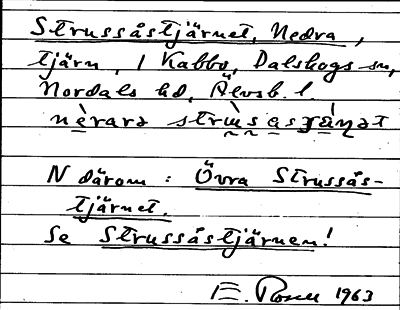 Strussåstjärnet, Nedra,
tjärn, i Kabbo, Dalskogs sn,
Nordals hd, Älvsb. l.
N därom: Övra Strussås-
tjärnet.
Se Strussåstjärnen!
1963